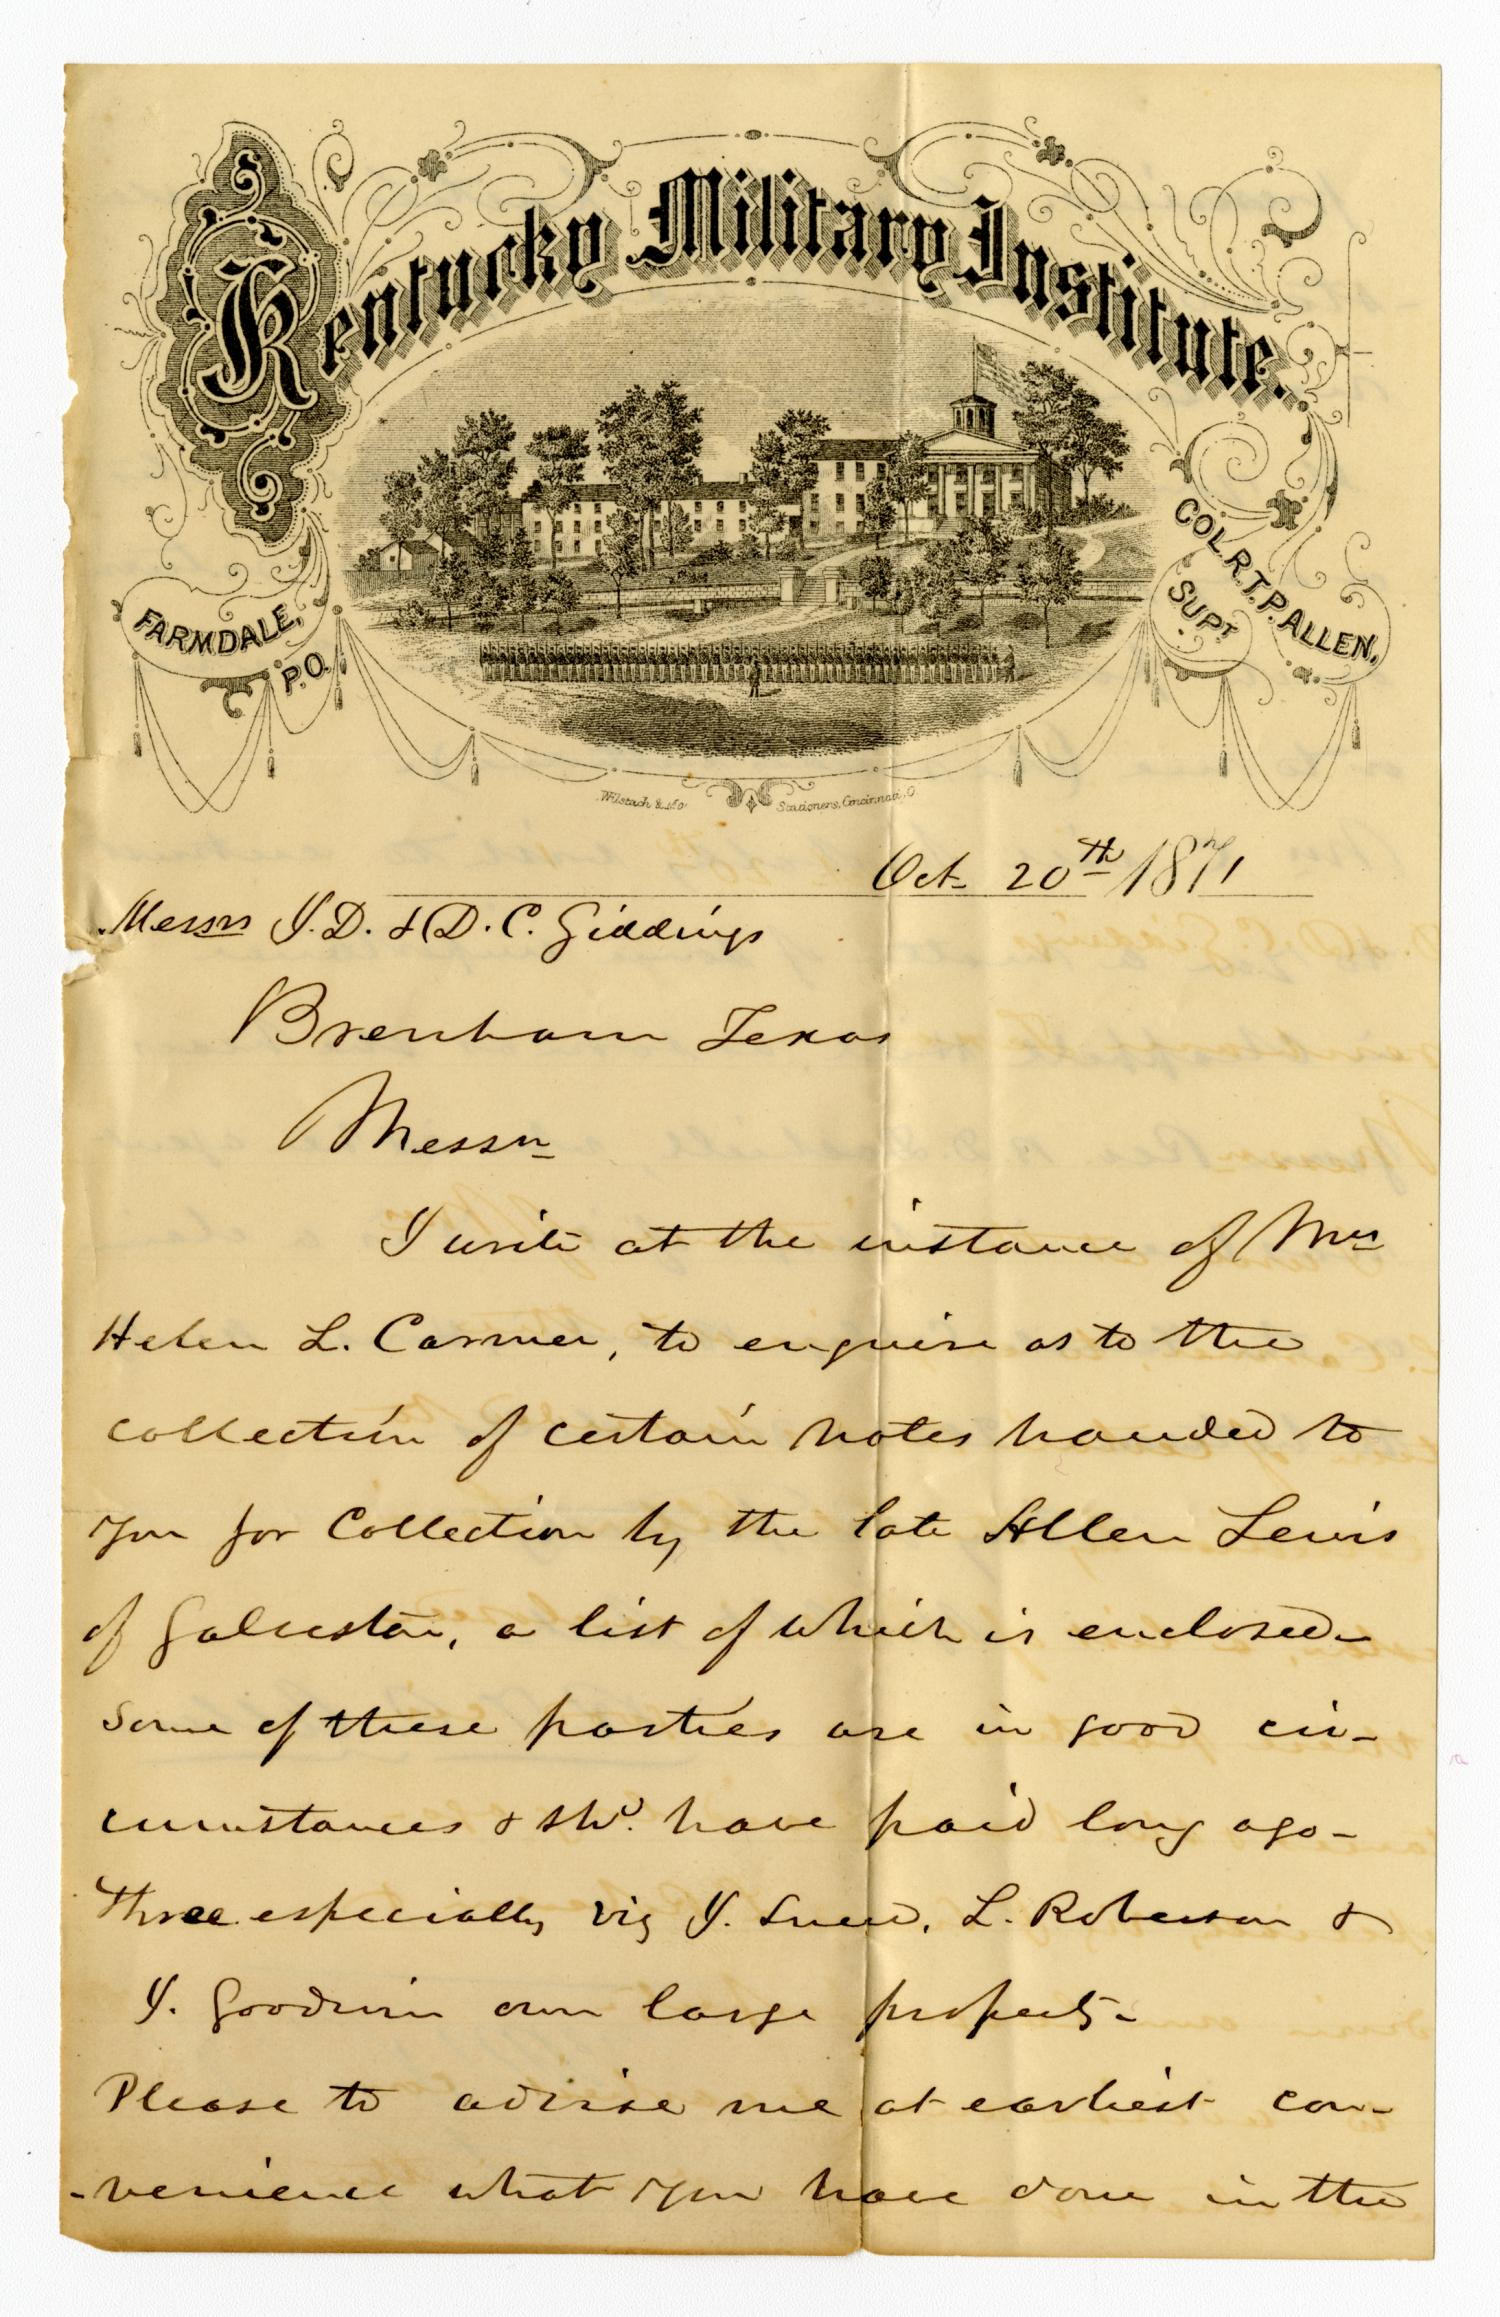 Kentucky Military Institute.
FARMDALE, P.O.
COL. R.T.P. ALLEN, SUPT
Wilstach & Co Stationers, Cincinnati, O.
Oct. 20th 1871
Messrs J. D. & D. C. Giddings
Brenham Texas
Messrs
I write at the instance of Mrs
Helen L. Carmer, to enquire as to the
collection of certain notes handed to
you for collection by the late Allen Lewis
of Galveston, a list of which is enclosed–
Some of these parties are in good cir–
cumstances & shd. have paid long ago–
Three especially viz J. Sneed, L. Roberson &
J. Goodwin own large property–
Please to advise me at earliest con–
–venience what you have done in the